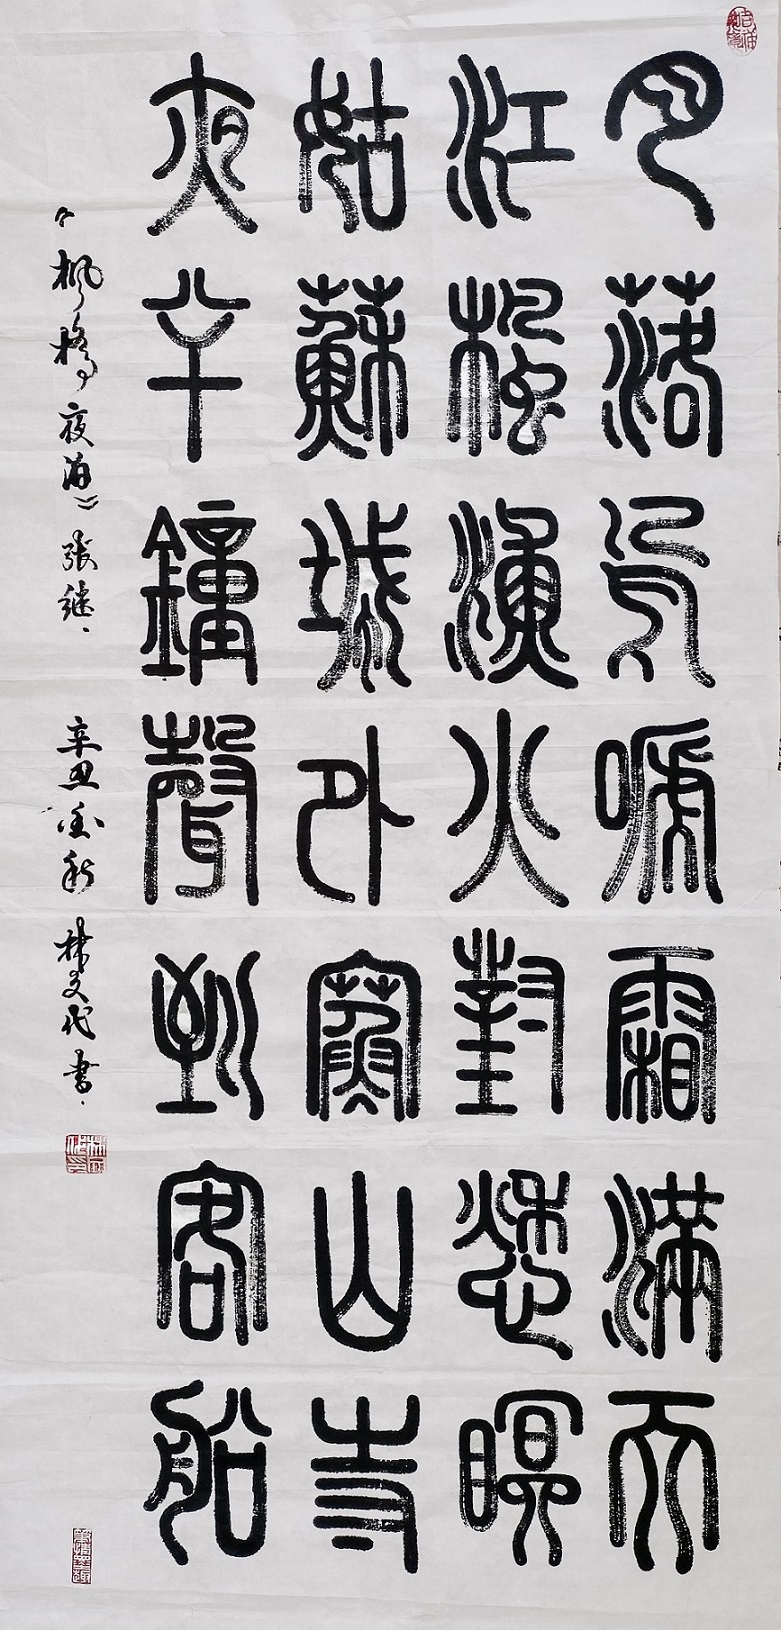 月落烏啼霜滿天
江楓漁火對愁瞑
姑蘇城外寒山寺
夜半鐘聲到客船
《枫橋夜泊》张继、辛丑金秋 林文代書、